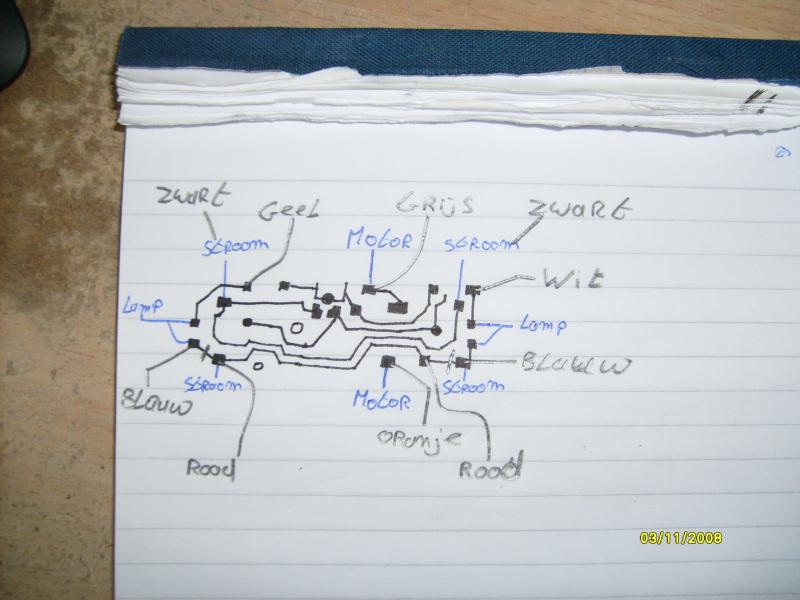 Zwart
Geel
GRIJS
Zwart
Stroom
Motor
Stroom
Wit
Lamp
Lamp
Blauw
Stroom
Motor
Stroom
BLauw
oranje
Rood
Rood
03/11/2008